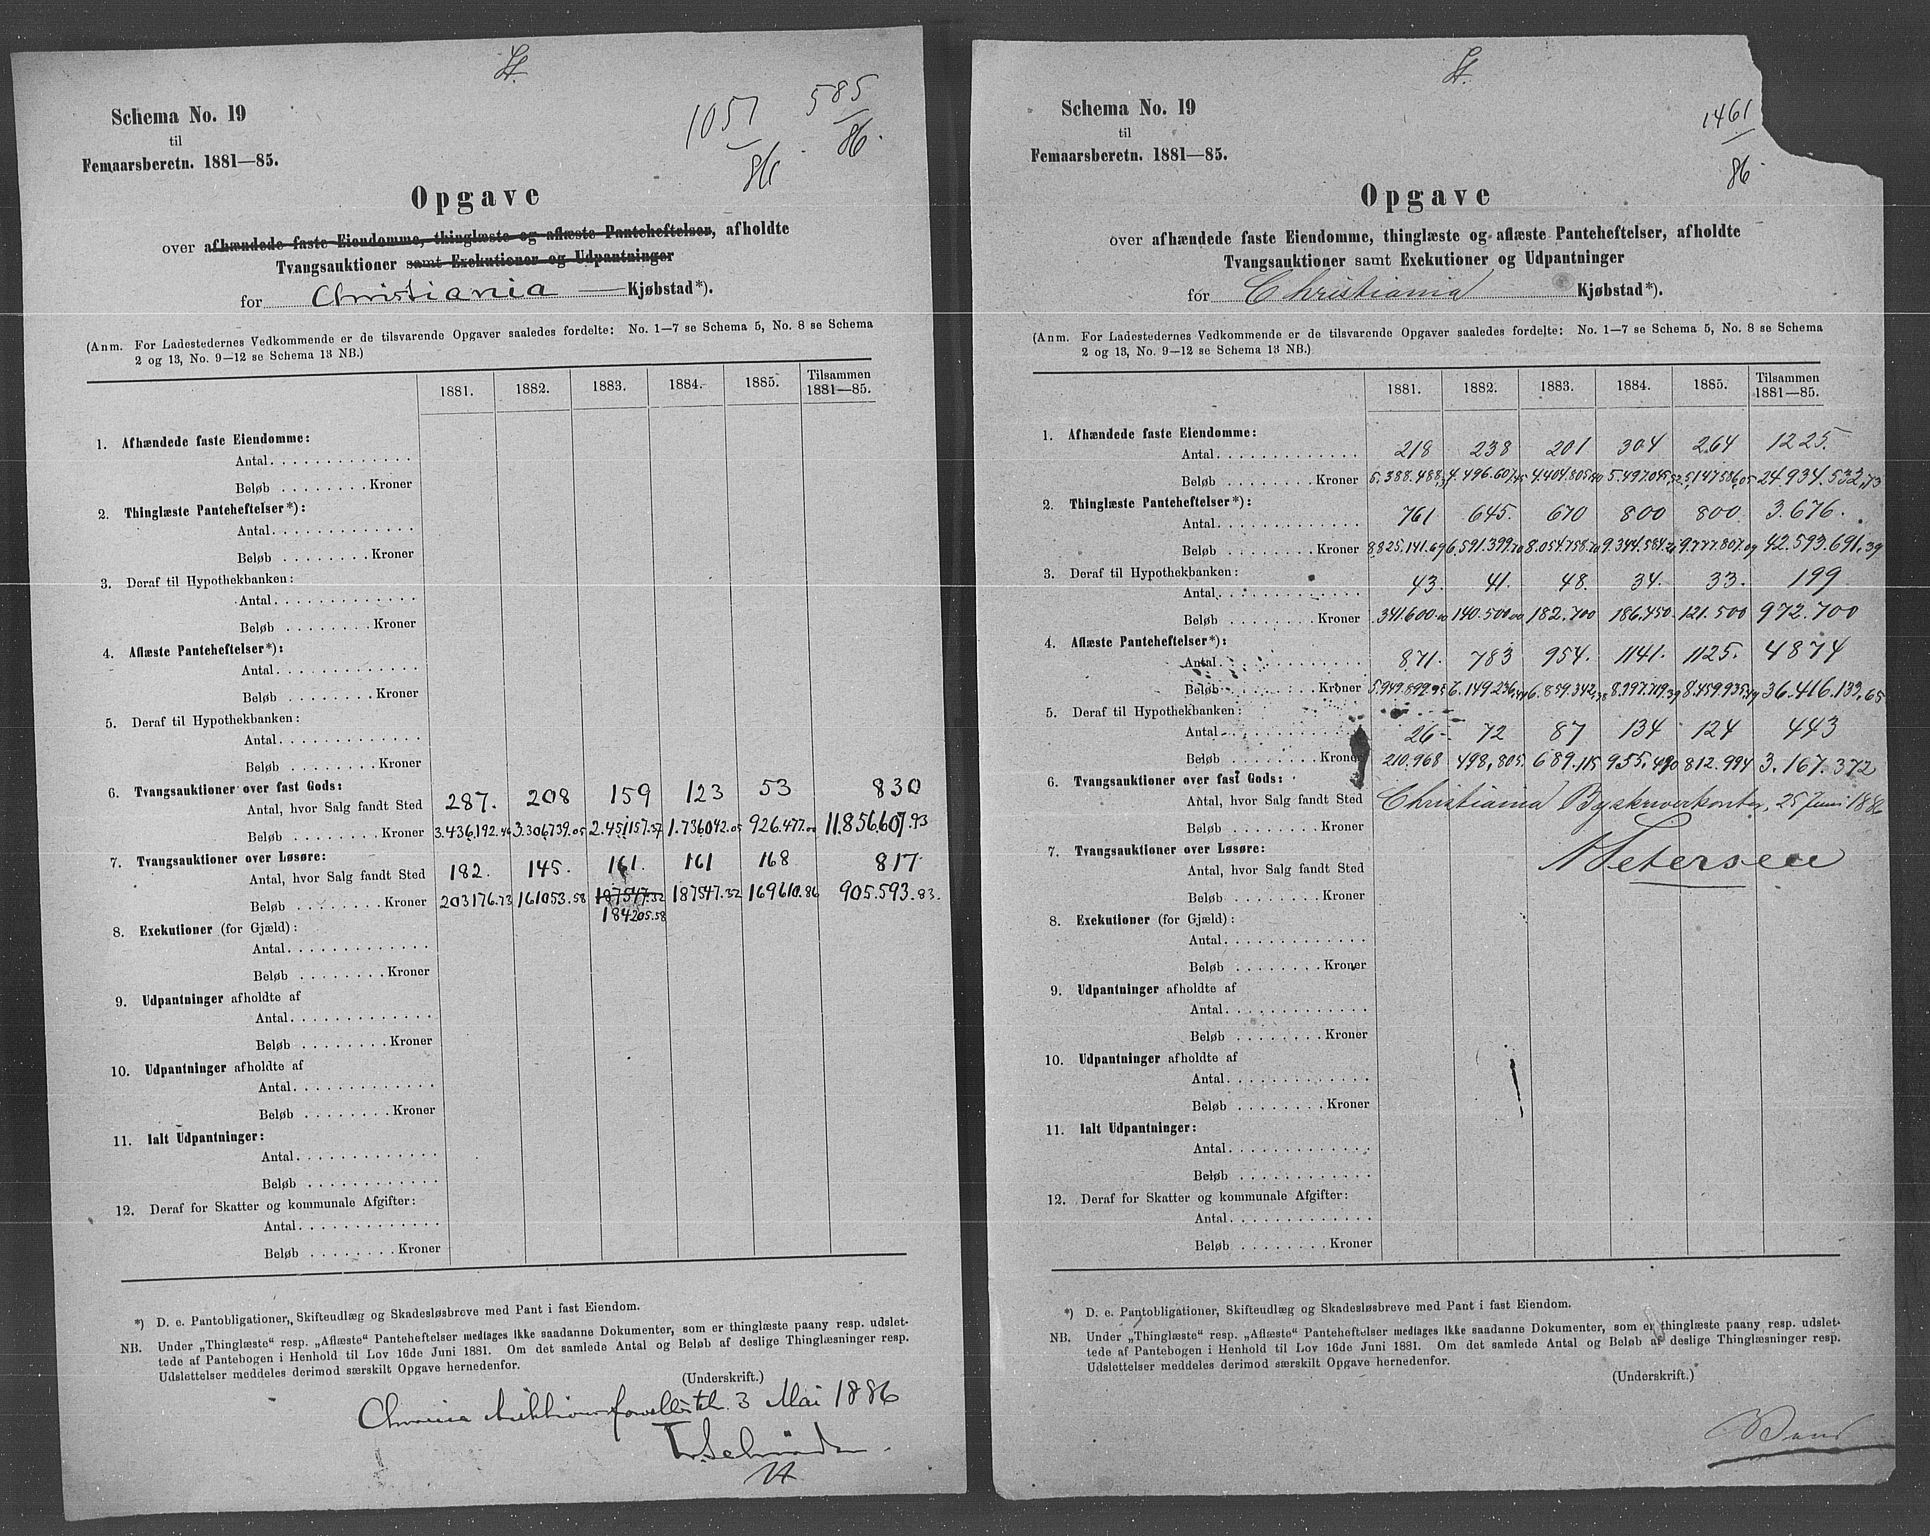 St.
1057
86
585
86.
Schema No. 19
til
Femaarsberetn. 1881—85.
Opgave
over afhændede faste Eiendomme, thinglæste og aflæste Panteheftelser, afholdte
Tvangsauktioner samt Exekutioner og Udpantninger
for Christiania Kjøbstad*).
(Anm. For Ladestedernes Vedkommende er de tilsvarende Opgaver saaledes fordelte: No. 1—7 se Schema 5, No. 8 se Schema
2 og 13, No. 9—12 se Schema 13 NB.)
1881. 1882. 1883. 1884. 1885. Tilsammen 1881—85.
1. Afhændede faste Eiendomme:
Antal
Beløb Kroner
2. Thinglæste Panteheftelser*):
Antal
Beløb Kroner
3. Deraf til Hypothekbanken:
Antal
Beløb Kroner
4. Aflæste Panteheftelser*):
Antal
Beløb Kroner
5. Deraf til Hypothekbanken:
Antal
Beløb Kroner
6. Tvangsauktioner over fast Gods:
Antal, hvor Salg fandt Sted 287. 208 159 123 53 830
Beløb Kroner 3.436,192.46 3.306739.05 2.451157.37 1.736042.05 926.477.00 11.856.607.93
7. Tvangsauktioner over Løsøre:
Antal, hvor Salg fandt Sted 182. 145. 161. 161 168 817
Beløb Kroner 203176.73 161053.58 187547.32 187547.32 169610.86 905.593.83.
184205.58
8. Exekutioner (for Gjæld):
Antal
Beløb Kroner
9. Udpantninger afholdte af
Antal
Beløb Kroner
10. Udpantninger afholdte af
Antal
Beløb Kroner
11. Ialt Udpantninger:
Antal
Beløb
12. Deraf for Skatter og kommunale Afgifter:
Antal
Beløb Kroner
*) D. e. Pantobligationer, Skifteudlæg og Skadesløsbreve med Pant i fast Eiendom.
NB. Under „Thinglæste“ resp. „Aflæste“ Panteheftelser medtages ikke saadanne Dokumenter, som er thinglæste paany resp. udslet-
tede af Pantebogen i Henhold til Lov 16de Juni 1881. Om det samlede Antal og Beløb af deslige Thinglæsninger resp.
Udslettelser meddeles derimod særskilt Opgave hernedenfor.
(Underskrift.)
3 Mai 1886
St.
1461
86
Schema No. 19
til
Femaarsberetn. 1881—85.
Opgave
over afhændede faste Eiendomme, thinglæste og aflæste Panteheftelser, afholdte
Tvangsauktioner samt Exekutioner og Udpantninger
for Christiania Kjøbstad*).
(Anm. For Ladestedernes Vedkommende er de tilsvarende Opgaver saaledes fordelte: No. 1—7 se Schema 5, No. 8 se Schema
2 og 13, No. 9—12 se Schema 13 NB.)
1881. 1882. 1883. 1884. 1885. Tilsammen 1881—85.
1. Afhændede faste Eiendomme:
Antal 218 238 201 304 264 1225.
Beløb Kroner 4.496.607,45 4.404.805,40 5.497.045,52 5,147586,05 24.934.532,73
2. Thinglæste Panteheftelser*):
Antal 761 645. 670 800 800. 3.676.
Beløb Kroner 8.825.141.69 6,591.399.70 8.054.758.70 9.344.584.21 9.777.807.09 42.593.691,39
3. Deraf til Hypothekbanken:
Antal 43. 41. 48. 34. 33. 199
Beløb Kroner 341.600.00 140.500.00 182.700 186.450. 121.500 972.700
4. Aflæste Panteheftelser*):
Antal 871. 783 954. 1141. 1125. 4874
Beløb Kroner 5.949.899.95 6.149.236,44 6.859.342,38 8.459.935,49 36.416.133,65
5. Deraf til Hypothekbanken:
Antal 26 72 87 134 124 443
Beløb Kroner 210.968 498,805. 689.115 955.490 812.994 3.167.372
6. Tvangsauktioner over fast Gods:
Antal, hvor Salg fandt Sted Christiania Byskriverkontor, 25 Juni 1886
Beløb Kroner
7. Tvangsauktioner over Løsøre:
Antal, hvor Salg fandt Sted
Beløb Kroner
8. Exekutioner (for Gjæld):
Antal
Beløb Kroner
9. Udpantninger afholdte af
Antal
Beløb Kroner
10. Udpantninger afholdte af
Antal
Beløb Kroner
11. Ialt Udpantninger:
Antal
Beløb
12. Deraf for Skatter og kommunale Afgifter:
Antal
Beløb Kroner
*) D. e. Pantobligationer, Skifteudlæg og Skadesløsbreve med Pant i fast Eiendom.
NB. Under „Thinglæste“ resp. „Aflæste“ Panteheftelser medtages ikke saadanne Dokumenter, som er thinglæste paany resp. udslet-
tede af Pantebogen i Henhold til Lov 16de Juni 1881. Om det samlede Antal og Beløb af deslige Thinglæsninger resp.
Udslettelser meddeles derimod særskilt Opgave hernedenfor.
(Underskrift.)